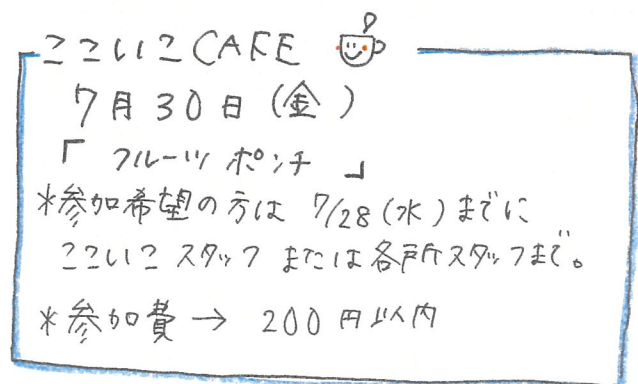 ここいこCAFE
7月30日(金)
「フルーツポンチ」
*参加希望の方は 7/28(水)までに
ここいこスタッフまたは各所スタッフまで。
*参加費→ 200円以内